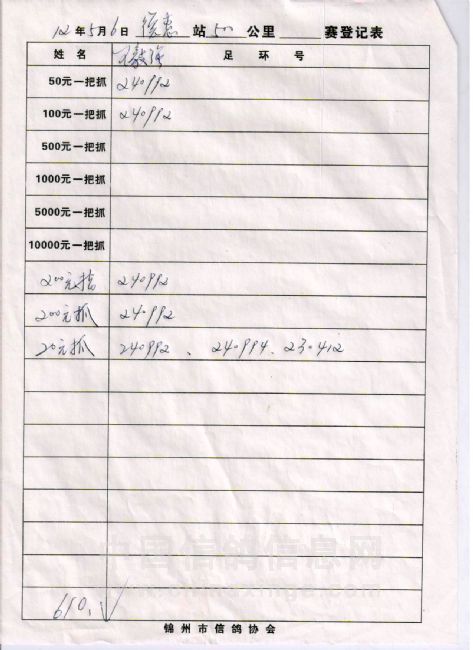 12年5月6日 德惠 站 500 公里 赛登记表
姓名 王毅强 足环号
50元一把抓 240992
100元一把抓 240992
500元一把抓
1000元一把抓
5000元一把抓
10000元一把抓
200元 240992
200元抓 240992
20元抓 240992、240994.230412
中国信鸽信息网
610.√
锦州市信鸽协会